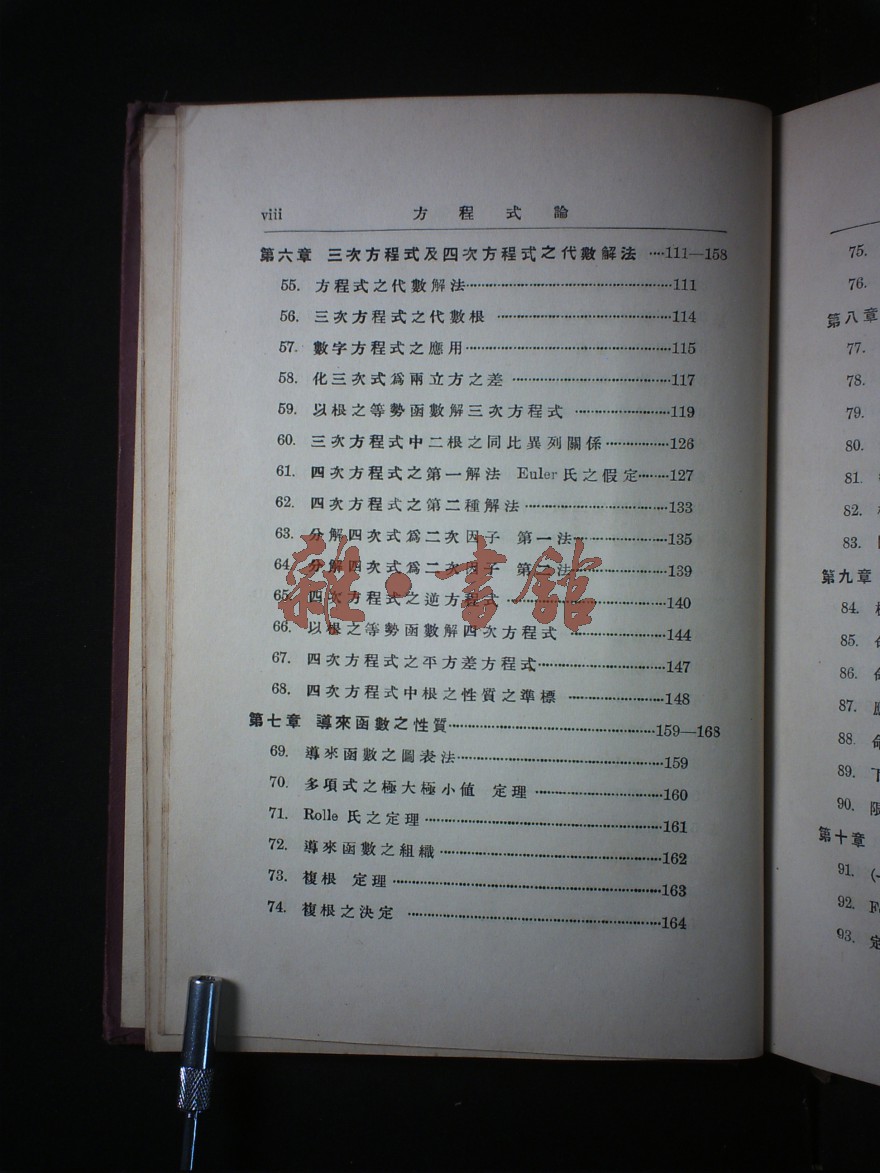 viii 方程式論
第六章 三次方程式及四次方程式之代數解法 ····111—158
55. 方程式之代數解法······111
56. 三次方程式之代數根 ······114
57. 數字方程式之應用······115
58. 化三次式爲兩立方之差 ······117
59. 以根之等勢函數解三次方程式 ······119
60. 三次方程式中二根之同比異列關係······126
61. 四次方程式之第一解法 Euler 氏之假定······127
62. 四次方程式之第二種解法······133
63. 分解四次式爲二次因子 第一法······135
64. 分解四次式爲二次因子 第二法······139
65. 四次方程式之逆方程式······140
66. 以根之等勢函數解四次方程式 ······144
67. 四次方程式之平方差方程式······147
68. 四次方程式中根之性質之準標 ······148
第七章 導來函數之性質······159—168
69. 導來函數之圖表法······159
70. 多項式之極大極小値 定理 ······160
71. Rolle 氏之定理······161
72. 導來函數之組織······162
73. 複根 定理······163
74. 複根之決定 ······164
雜·書館
75.
76.
第八章
77.
78.
79.
80.
81.
82.
83.
第九章
84.
85.
86.
87.
88.
89.
90. 限
第十章
91.
92.
93. 定